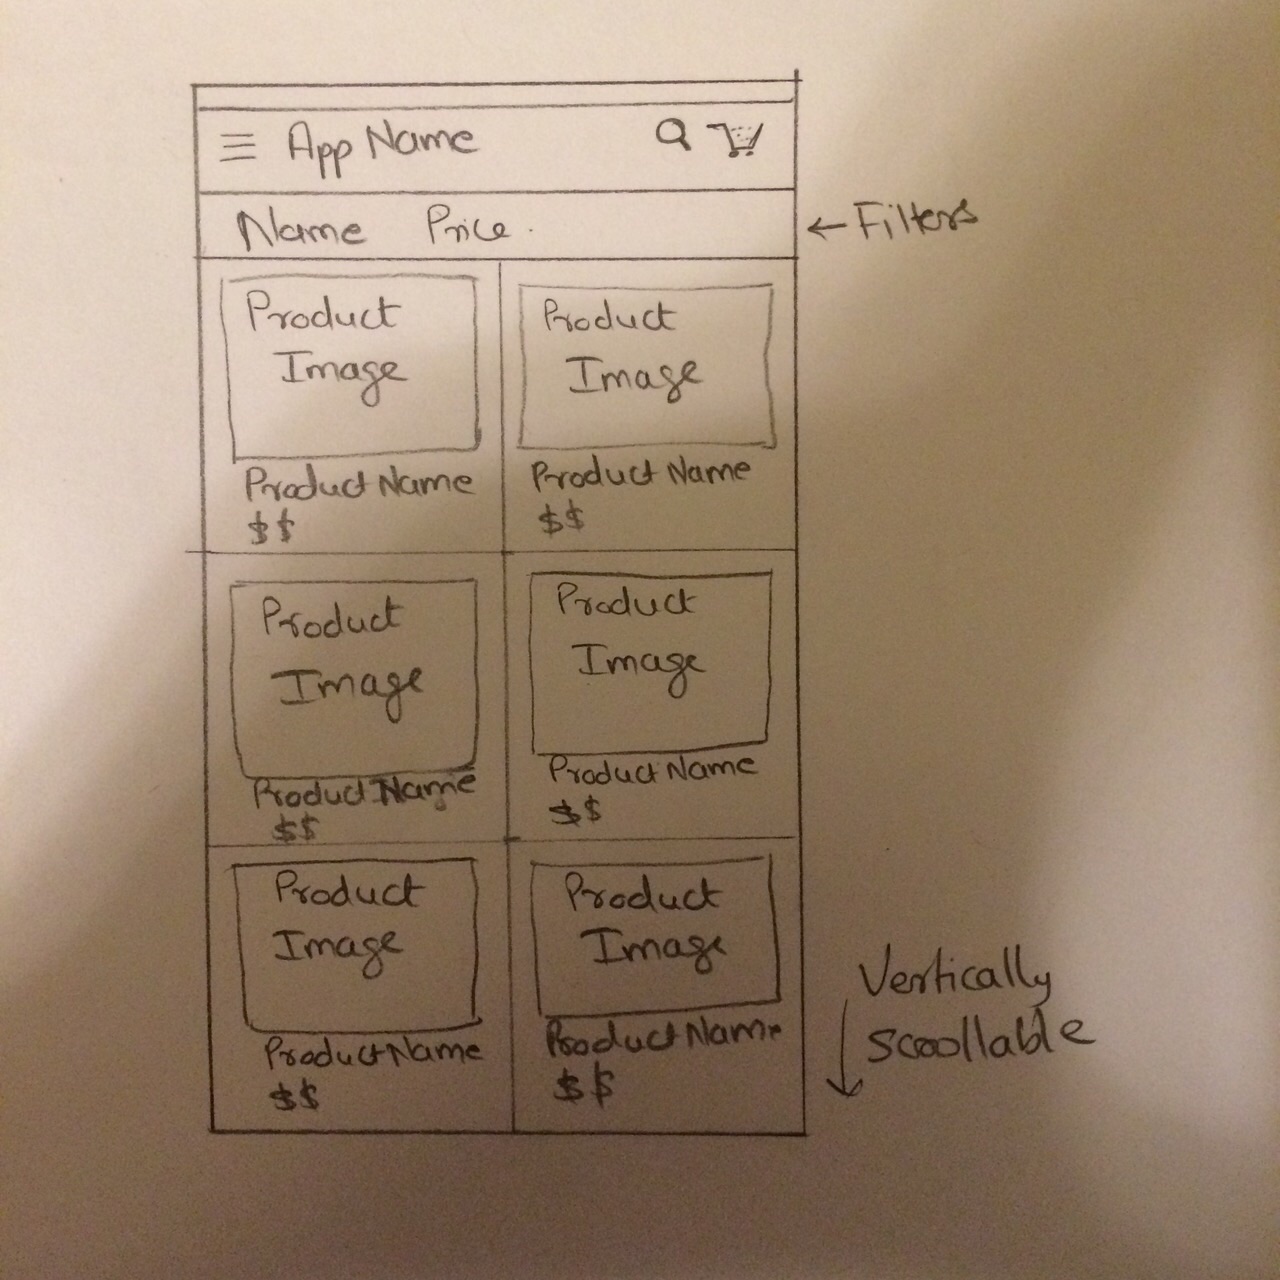 App Name
Name Price
← Filters
Product
Image
Product Name
$$
Product
Image
Product Name
$$
Product
Image
Product Name
$$
Product
Image
Product Name
$$
Product
Image
Product Name
$$
Product
Image
Product Name
$$
Vertically
scrollable